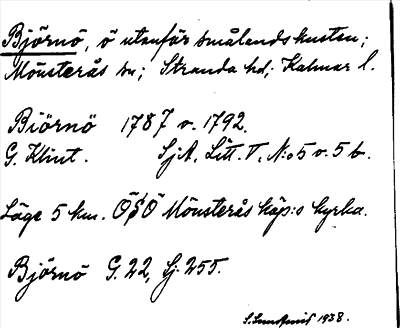 Björnö, ö utanför smålandskusten;
Mönsterås sn; Stranda hd; Kalmar l.
Biörnö 1787 o. 1792.
G. Klint. SjA, Litt. T, N:o 5 o. 5 b.
Läge 5 km. ÖSÖ Mönsterås köp:s kyrka.
Björnö G. 22, Sj. 255.
1938.